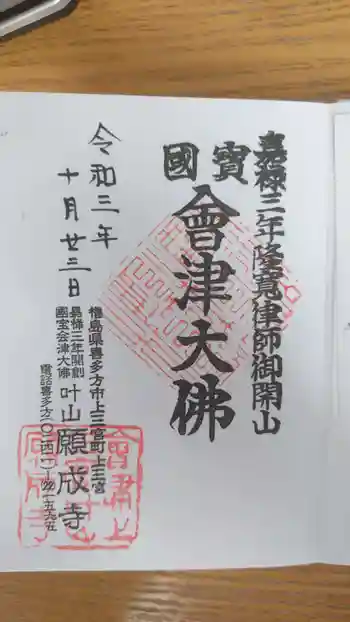 嘉禄三年隆寛律師御開山
國寶
會津大佛
令和三年
十月廿三日
福島県喜多方市上三宮町上三宮
嘉禄三年開創
國宝会津大佛
叶山
願成寺